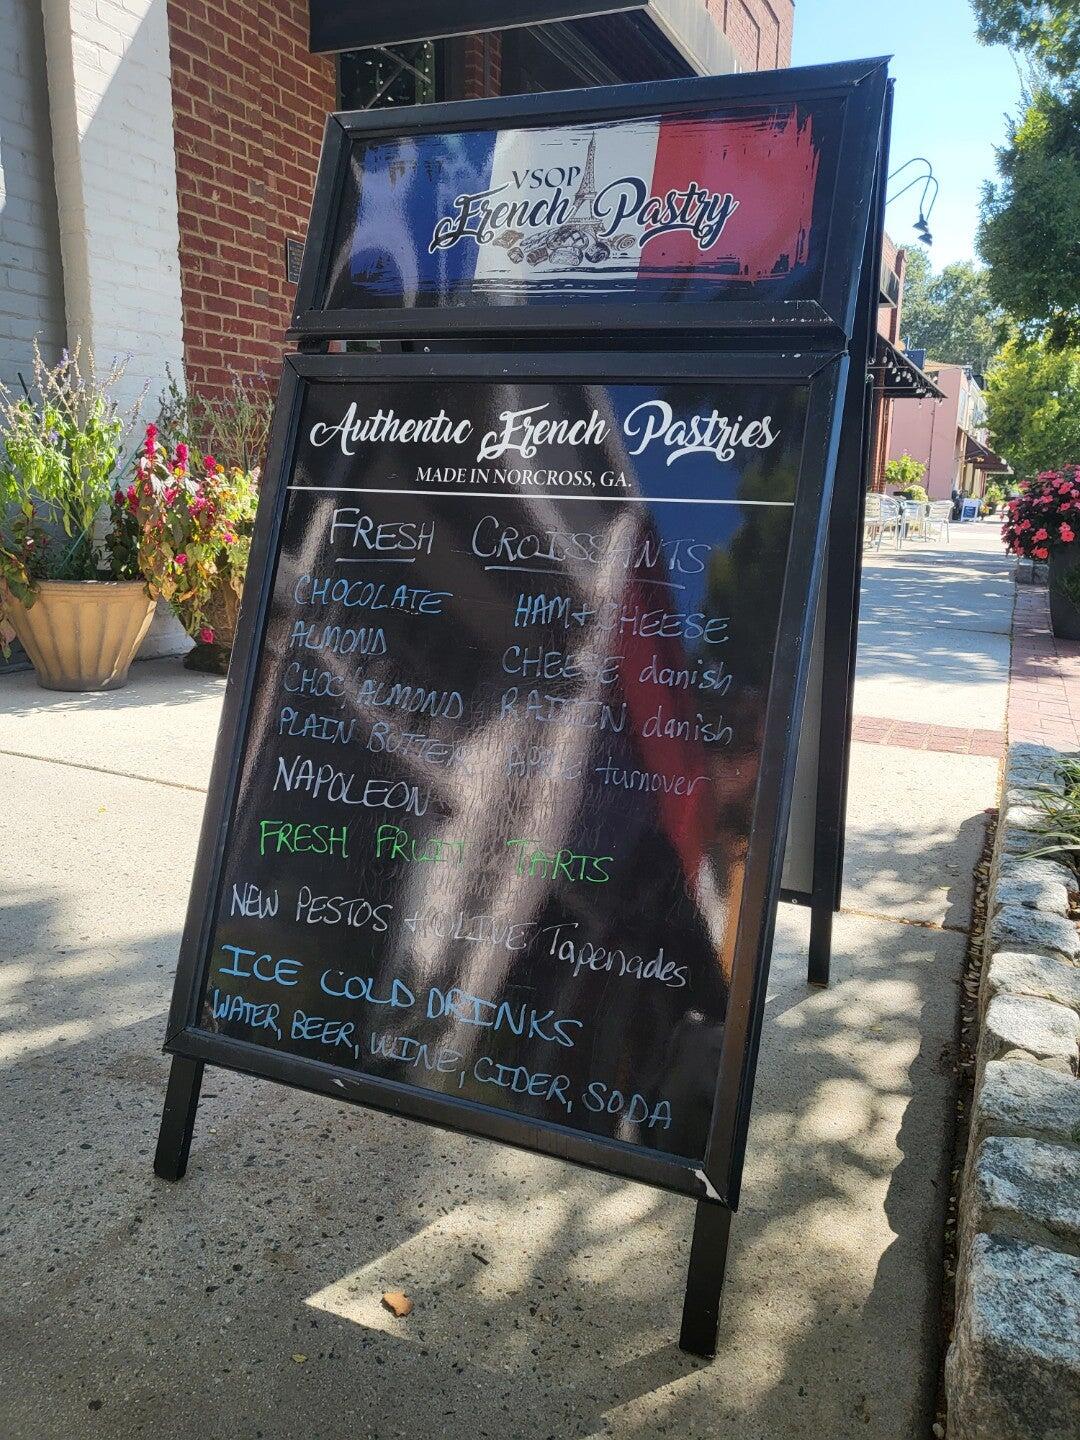 VSOP
French Pastry
Authentic French Pastries
MADE IN NORCROSS, GA.
FRESH CROISSANTS
CHOCOLATE HAM + CHEESE
ALMOND CHEESE danish
CHOC ALMOND RAISIN danish
PLAIN BUTTER APPLE turnover
NAPOLEON
FRESH FRUIT TARTS
NEW PESTOS + OLIVE Tapenades
ICE COLD DRINKS
WATER, BEER, WINE, CIDER, SODA